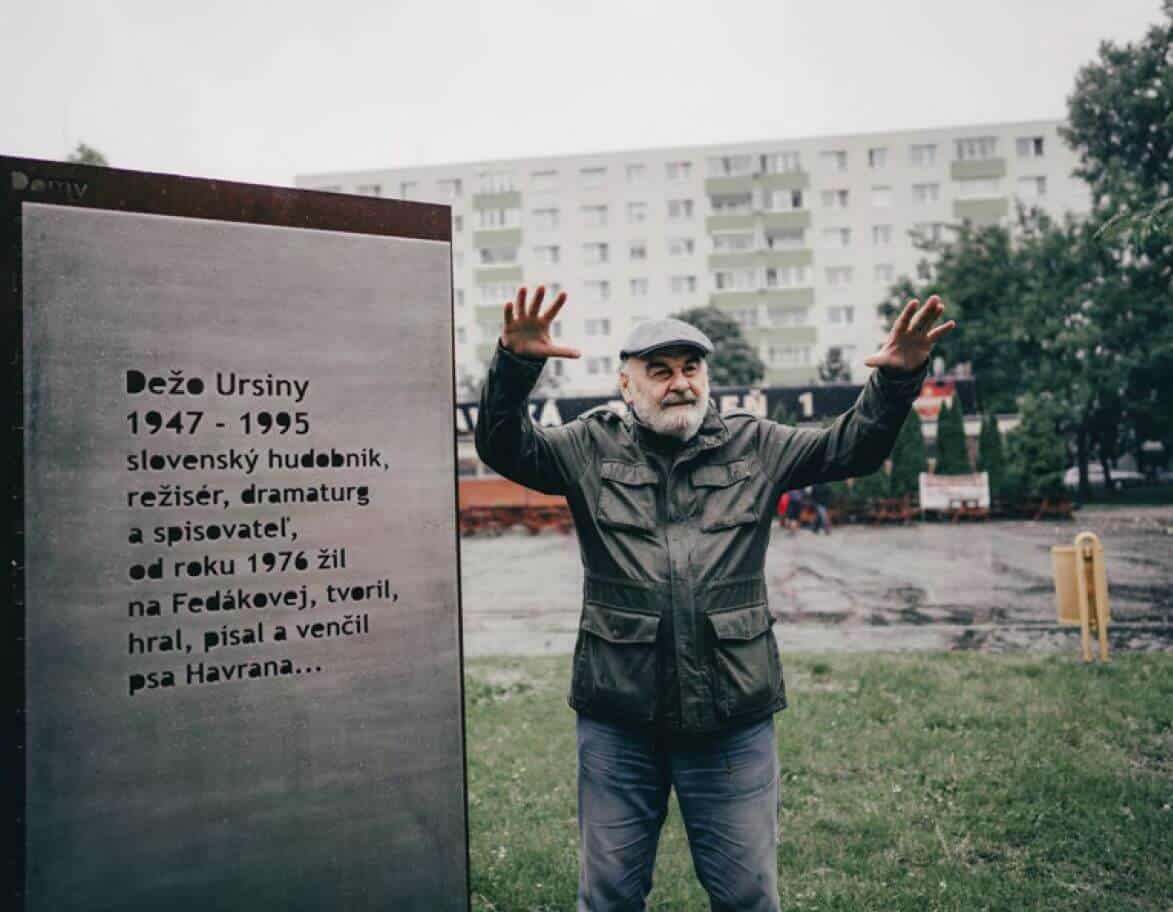 Domy
Dežo Ursiny
1947 - 1995
slovenský hudobník,
režisér, dramaturg
a spisovateľ,
od roku 1976 žil
na Fedákovej, tvoril,
hral, písal a venčil
psa Havrana...
1